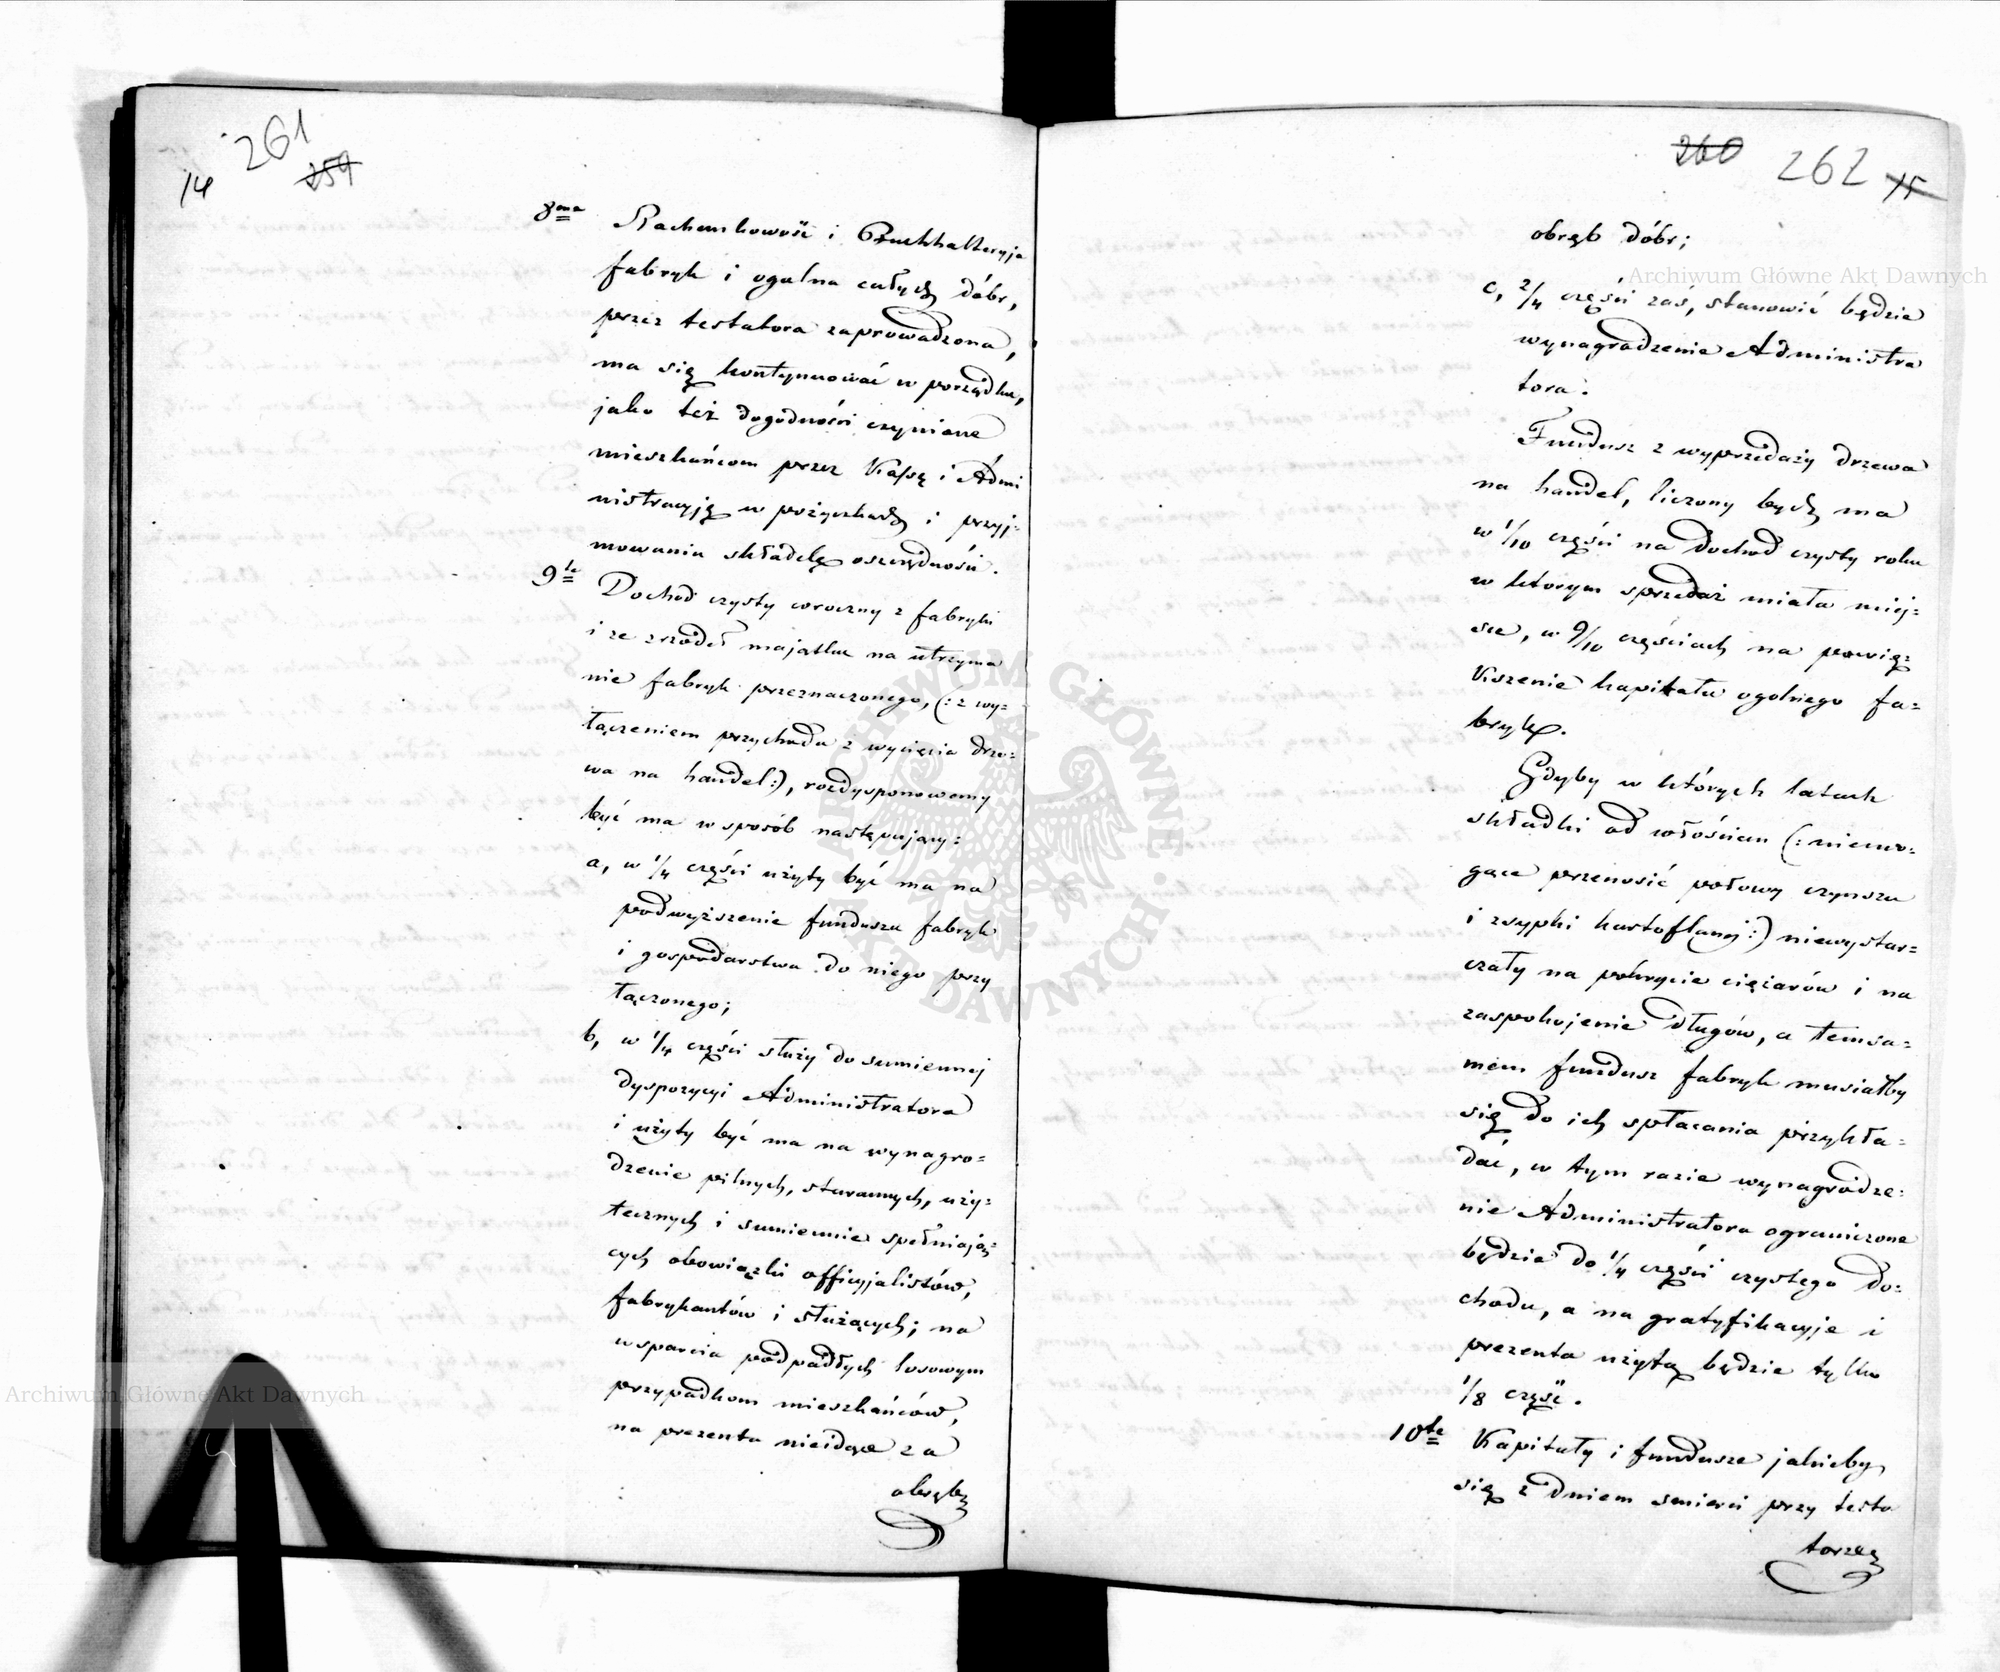 14
261
259
8ma Rachunkowość i Buchhalteryja
fabryk i ogulna całych dóbr,
przez testatora zaprowadzona,
ma się kontynuować w porządku,
jako też dogodności czynione
mieszkańcom przez Kassę i Admi
nistracyję w pożyczkach i przyj=
mowaniu składek oszczędności.
9te Dochod czysty coroczny z fabryk
i ze zrzódeł majątku na utrzyma
nie fabryk przeznaczonego, (: z wy=
łączeniem przychodu z wycięcia drze=
wa na handel:), rozdysponowany
być ma w sposób następujący:
a, w 1/4 części użyty być ma na
podwyższenie funduszu fabryk
i gospodarstwa do niego przy
łączonego;
b, w 1/4 części służy do sumiennej
dyspozycyi Administratora
i użyty być ma na wynagro=
dzenie pilnych, starannych, uży=
tecznych i sumiennie spełniają=
cych obowiązki officyjalistów,
fabrykantów i służących; na
wsparcia podpadłych losowym
przypadkom mieszkańców,
na prezenta nieidące za
obręb
260
262
15
obręb dóbr;
c, 2/4 części zaś, stanowić będzie
wynagrodzenie Administra
tora.
Fundusz z wyprzedaży drzewa
na handel, liczony bydź ma
w 1/10 części na dochod czysty roku
w ktorym sprzedaż miała miej=
sce, w 9/10 częściach na powię=
kszenie kapitału ogolnego fa=
bryk.
Gdyby w których latach
składki od włościan (: niemo=
gące przenosić połowy czynszu
i zsypki kartoflanej:) niewystar=
czały na pokrycie ciężarów i na
zaspokojenie długów, a temsa=
mem fundusz fabryk musiałby
się do ich spłacania przykła=
dać, w tym razie wynagrodze=
nie Administratora ograniczone
będzie do 1/4 części czystego do=
chodu, a na gratyfikacyje i
prezenta użytą będzie tylko
1/8 część.
10te Kapitały i fundusze jakieby
się z dniem śmierci przy testa
torze
Archiwum Główne Akt Dawnych
Archiwum Główne Akt Dawnych
ARCHIWUM GŁÓWNE AKT DAWNYCH